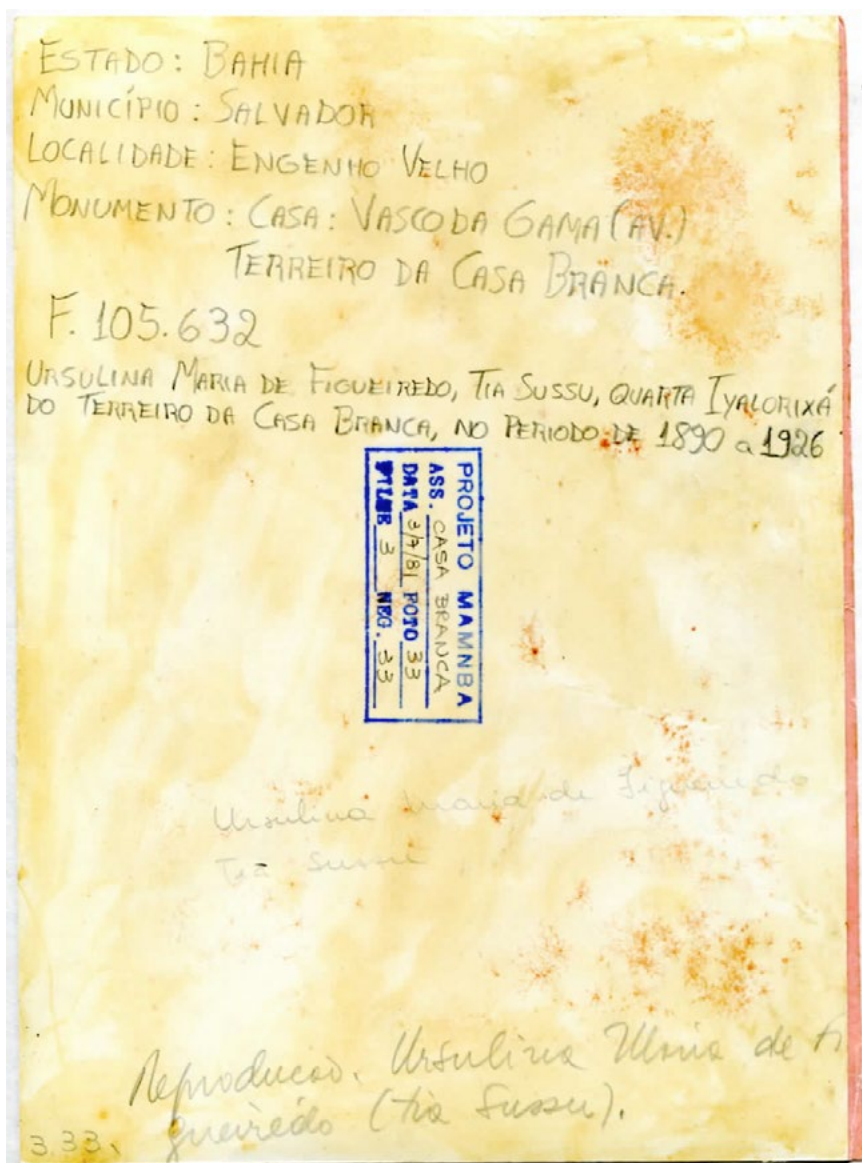 ESTADO: BAHIA
MUNICÍPIO: SALVADOR
LOCALIDADE: ENGENHO VELHO
MONUMENTO: CASA: VASCO DA GAMA (AV.)
TERREIRO DA CASA BRANCA.
F. 105.632
URSULINA MARIA DE FIGUEIREDO, TIA SUSSU, QUARTA IYALORIXÁ
DO TERREIRO DA CASA BRANCA, NO PERIODO DE 1890 a 1926
PROJETO MAMNBA
ASS. CASA BRANCA
DATA 3/7/81 FOTO 33
FILME 3 NEG. 33
Ursulina Maria de Figueiredo
Tia Sussu
Reproducao. Ursulina Maria de Fi
gueiredo (tia Sussu).
3.33.